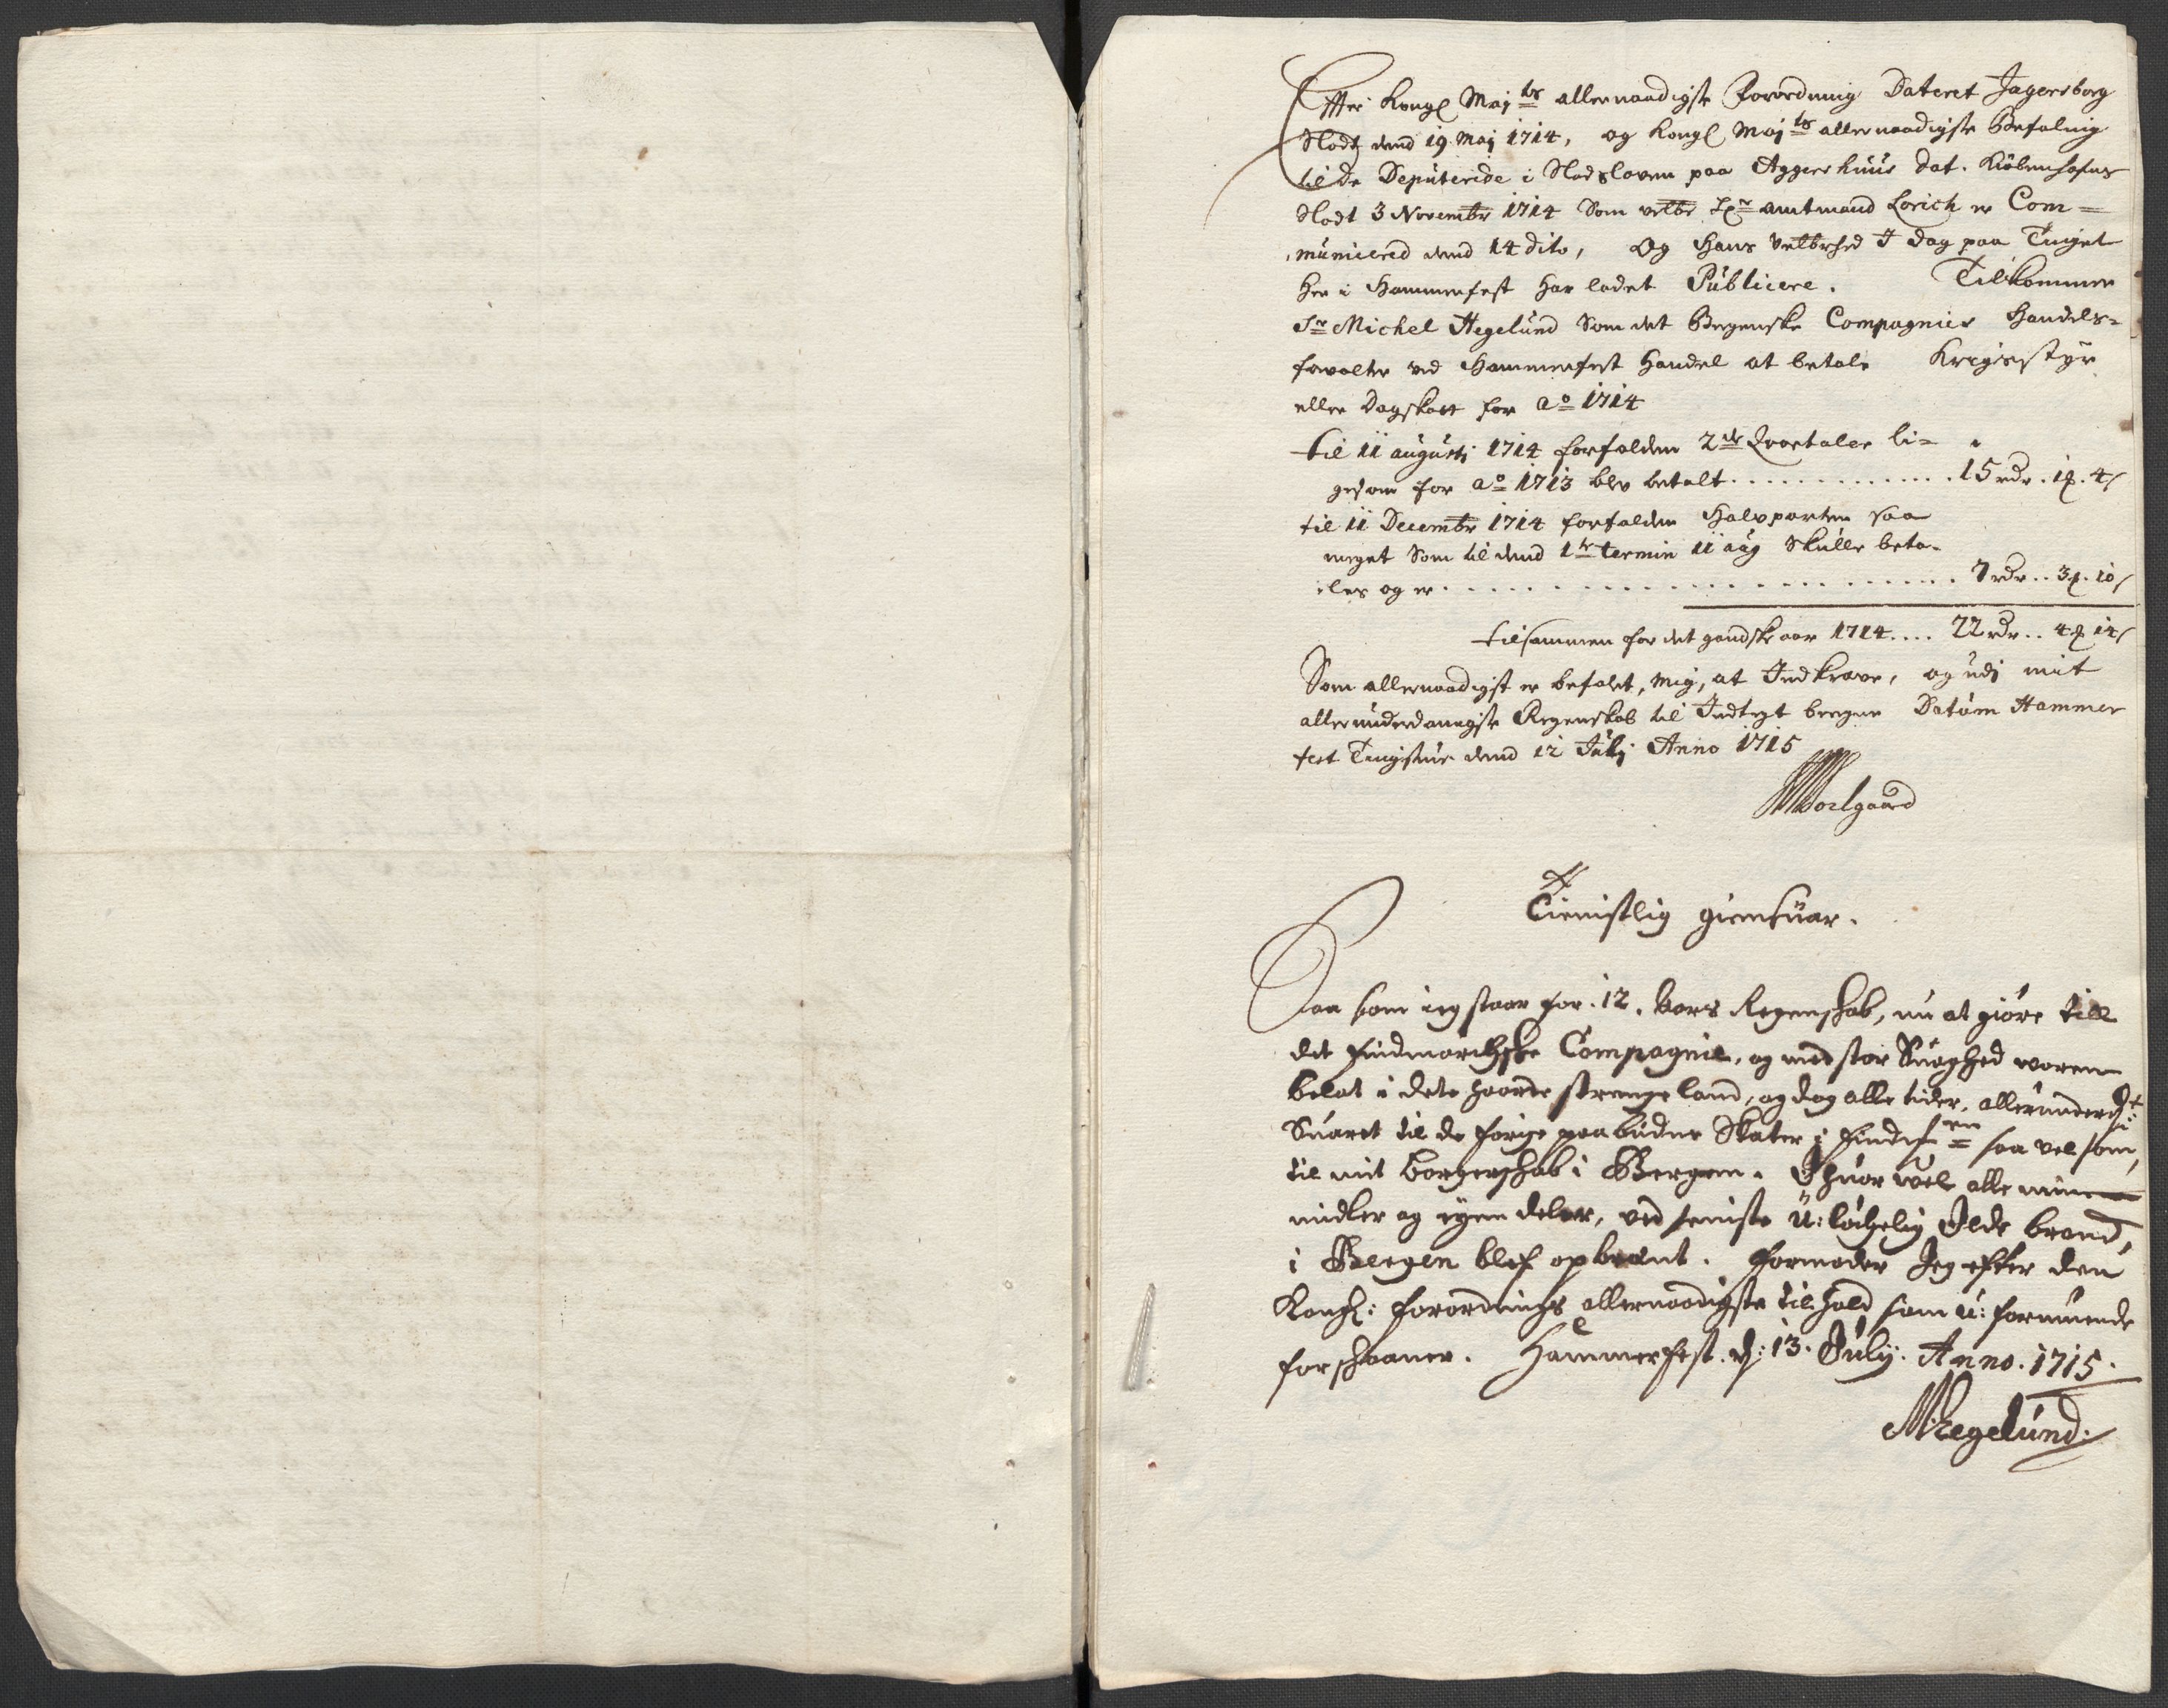 Effter Kongl Maj.ts allernaadigste Forordning Dateret Jagersborg
Slodt dend 19 Maj 1714, og Kongl Maj.ts allernaadigste Befaling
til de Deputerede i Slodsloven paa Aggershuus dat. Kiøbenhafns
Slodt 3 Novembr 1714 Som velbr Hr amtmand Lorich er Com=
municered dend 14 dito, Og Hans Velbrhed I dag paa Tinget
her i Hammerfest har ladet Publicere. Tilkommer
Sr Michel Hegelund Som det Bergenske Compagnies Handels=
forvalter ved Hammerfest Handel at betale Krigsstyr
eller Dagskatt for ao 1714
til 11 augusti 1714 forfalden 2de Qvartaler li=
gesom for ao 1713 blev betalt . . . . . . . . . . . . . 15 rdr. 1 ꝑ. 4 ß
til 11 Decembr 1714 forfalden Halvparten saa
meget Som til dend 1te termin 11 aug Skulle beta=
les og er . . . . . . . . . . . . . . . . . . . . 7 rdr.. 3 ꝑ. 10 ß
tilsammen for det gandske aar 1714 .... 22 rdr.. 4 ꝑ 14 ß
Som allernaadigst er befalet, mig, at Indkræve, og udj mit
allerunderdanigste Regenskab til Indtegt beregne Datum Hammer
fest Tinghuus dend 12 Julj Anno 1715
Soelgaard
Tienistlig giensuar.
Saa som ieg staar for. 12. aars Regenschab, nu at giøre till
det Findmarchske Compagnie, og med stor Suaghed woren
belat i dete haarde strenge land, og dog alle tider, allerunderdt:
Suaret til de forige paabudne Skater i Findm saa vel som,
til mit borgerschab i Bergen. Ihuor vel alle mine
midler og eyendeler, ved seniste U: løchelig Ilde brand,
i Bergen blef opbrænt. Formoder Jeg efter den
Kongl: Forordnings allernaadigste tilhold som u: formuende
forschaaner. Hammerfest. d: 13. Julij. Anno. 1715.
MHegelund.